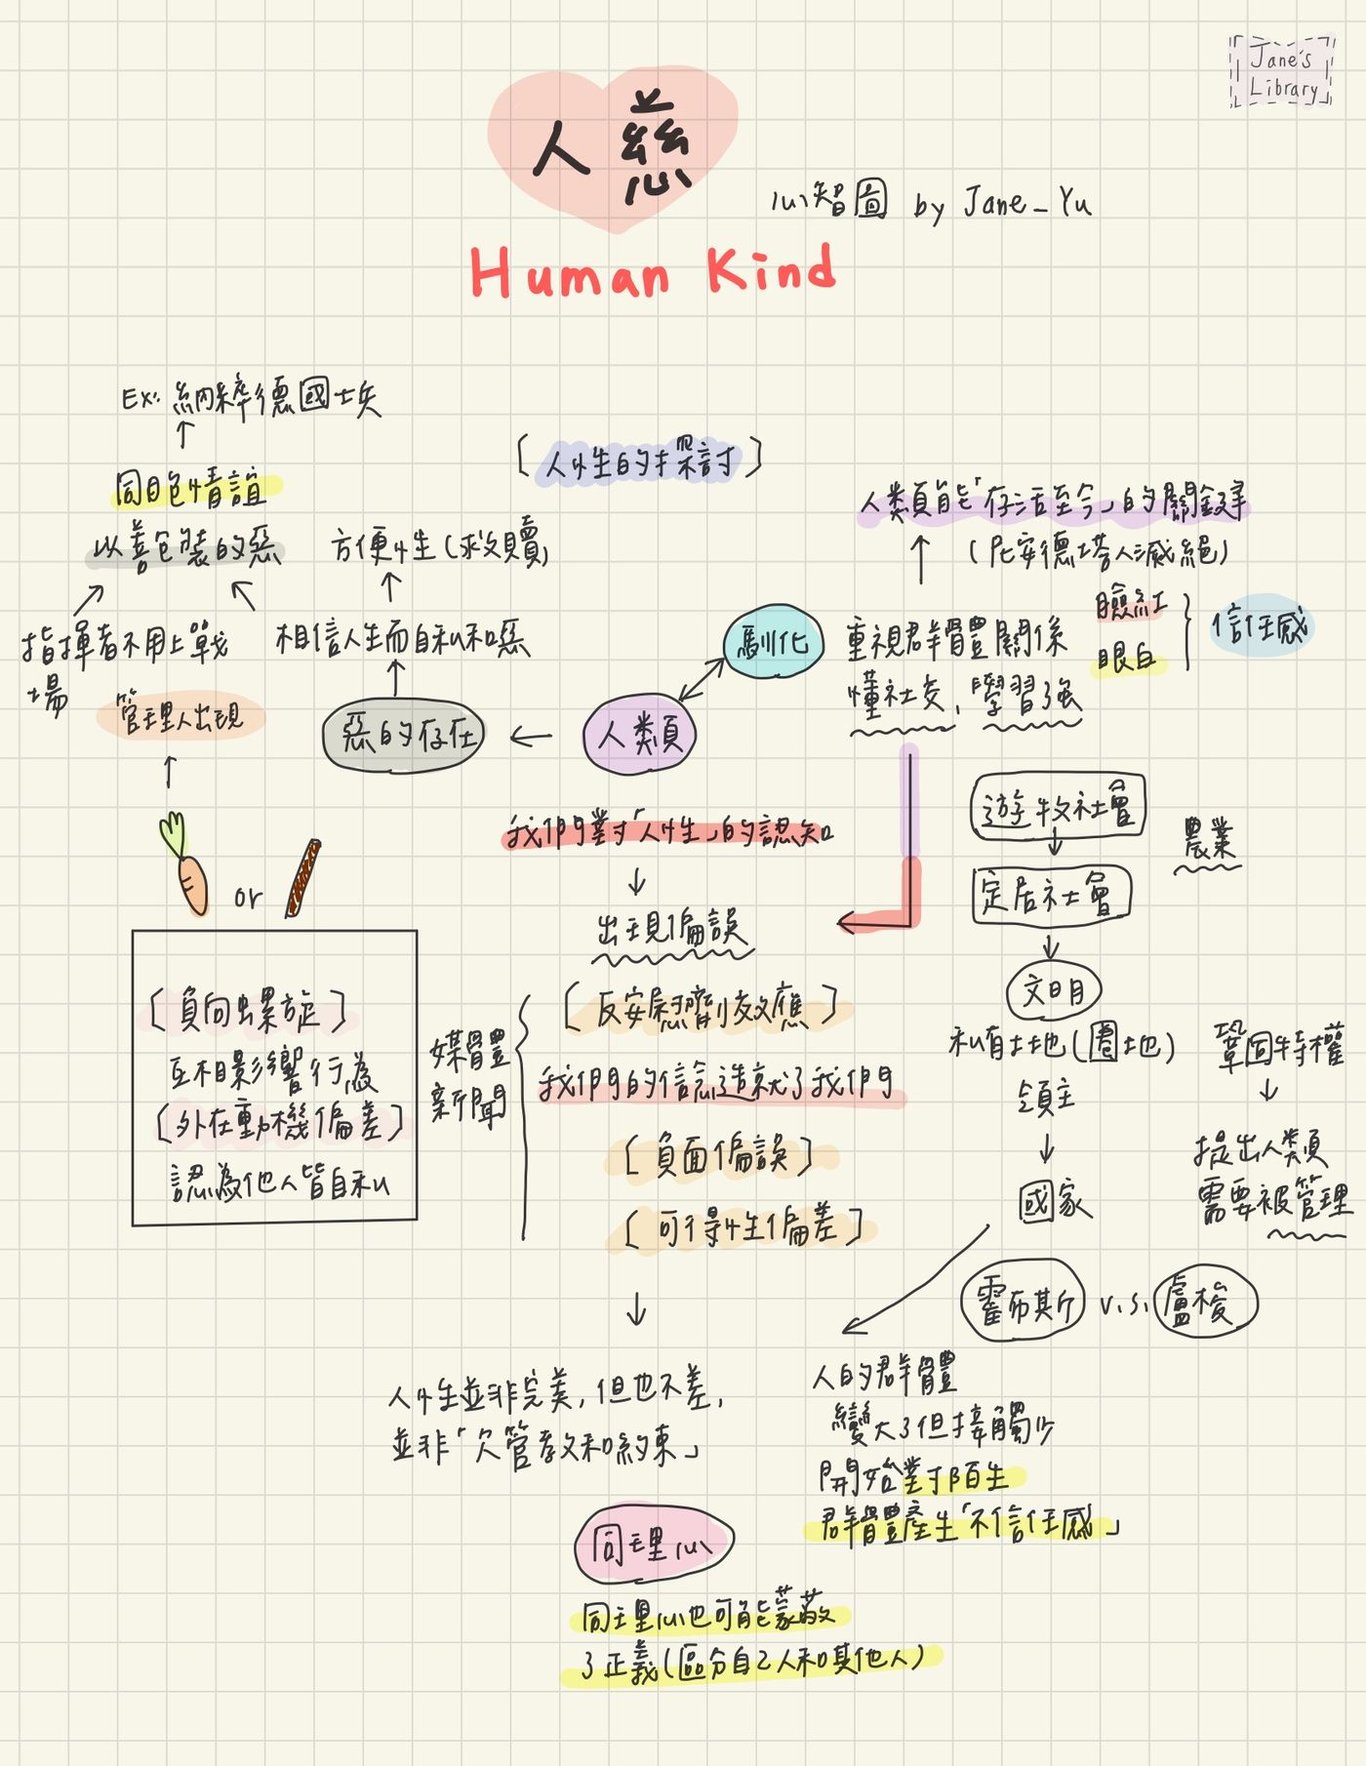 Jane's
Library
人慈
心智圖 by Jane_Yu
Human Kind
Ex: 納粹德國士兵
同胞情誼
以善包裝的惡
指揮者不用上戰
場
管理人出現
方便性(救贖)
相信人生而自私和惡
惡的存在
[人性的探討]
人類
馴化
人類能「存活至今」的關鍵
(尼安德塔人滅絕)
重視群體關係
懂社交、學習強
臉紅
眼白
信任感
or
[負向螺旋]
互相影響行為
[外在動機偏差]
認為他人皆自私
我們對「人性」的認知
出現偏誤
媒體
新聞
[反安慰劑效應]
我們的信念造就了我們
[負面偏誤]
[可得性偏差]
人性並非完美,但也不差,
並非「欠管教和約束」
同理心
同理心也可能蒙蔽
了正義(區分自己人和其他人)
遊牧社會
農業
定居社會
文明
私有土地(圈地)
領主
國家
鞏固特權
提出人類
需要被管理
霍布斯 v.s. 盧梭
人的群體
變大了但接觸少
開始對陌生
群體產生「不信任感」